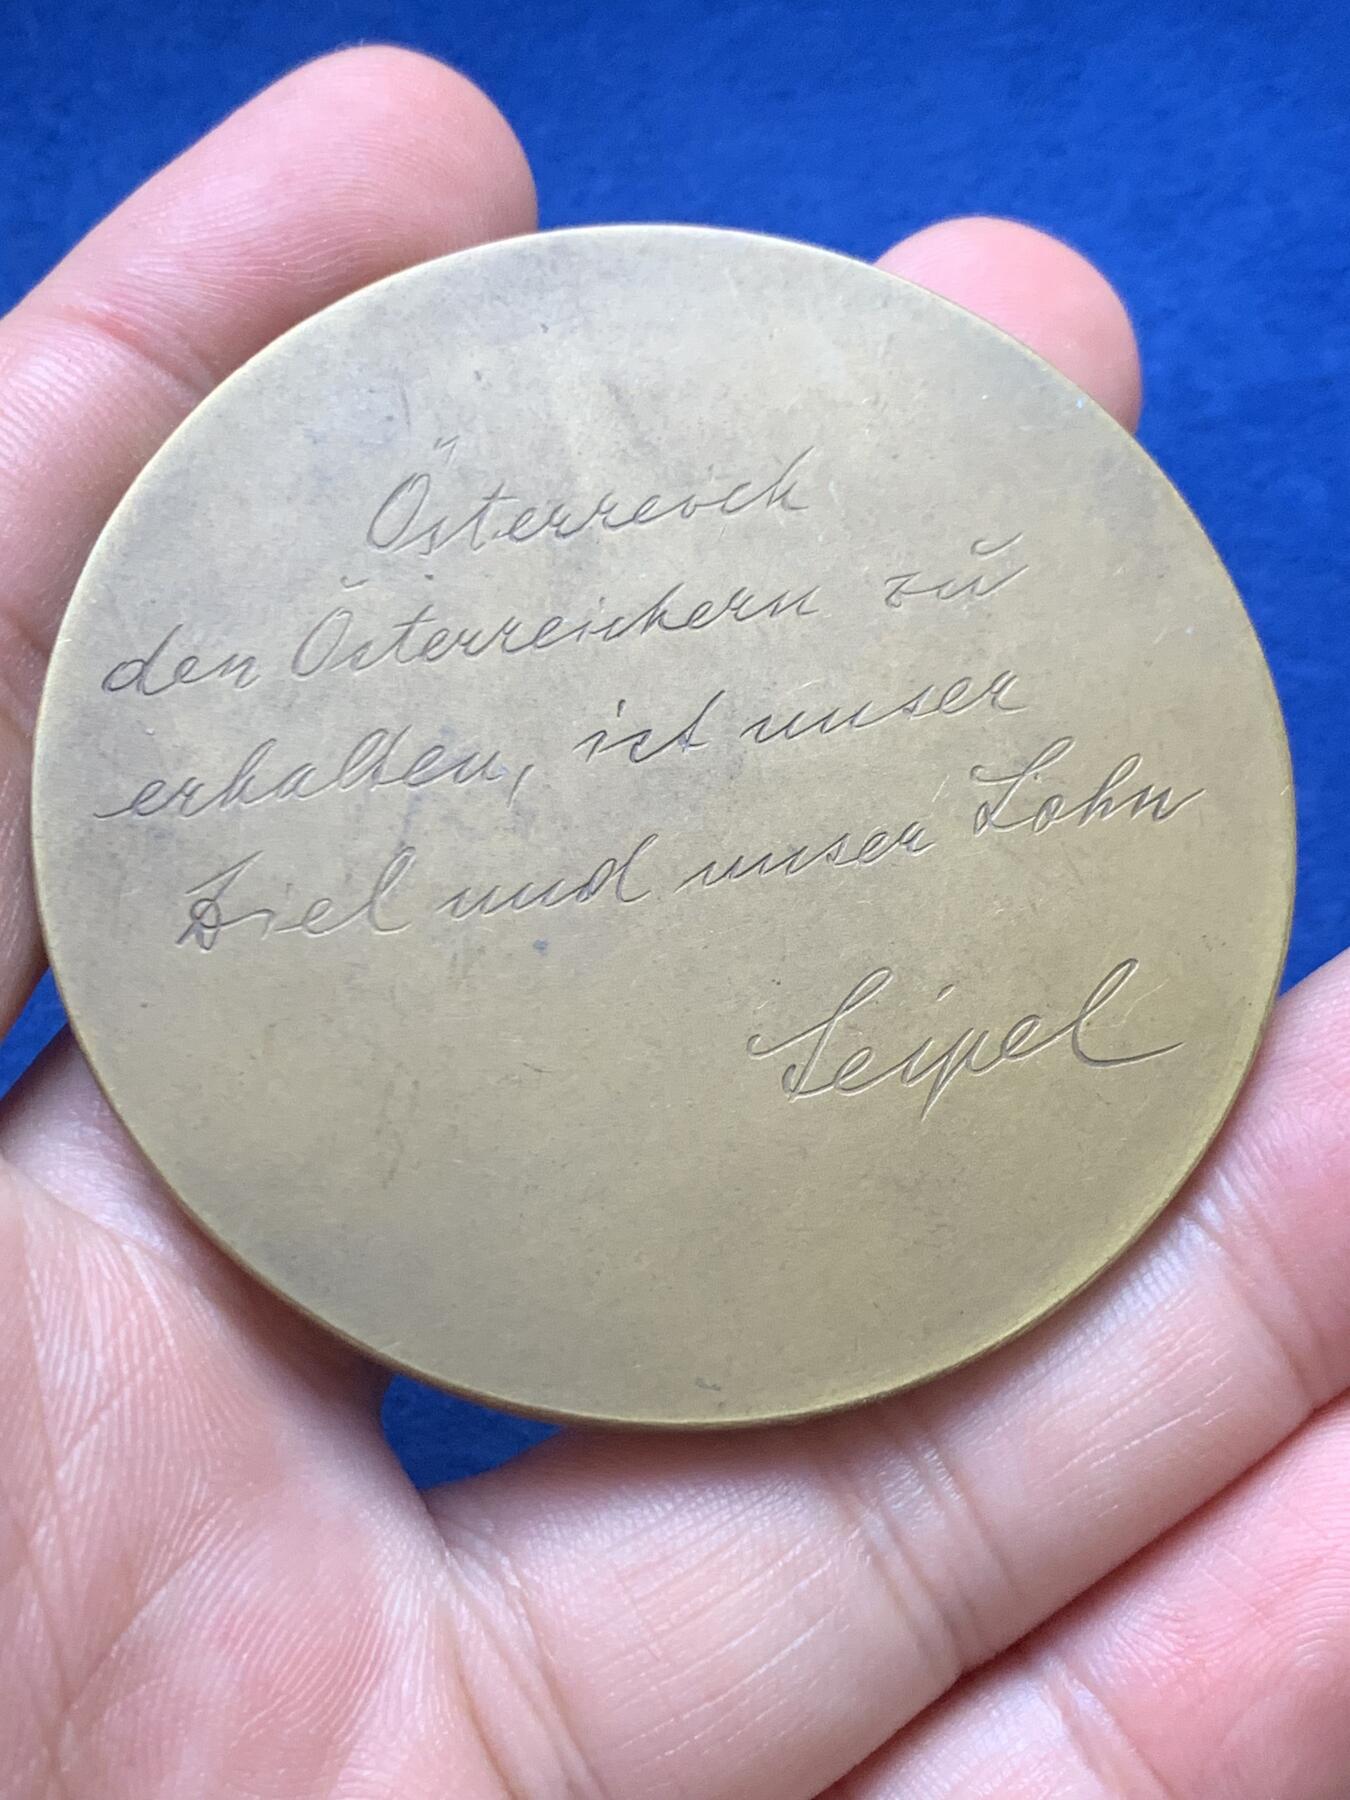 Österreich
den Österreichern zu
erhalten, ist unser
Ziel und unser Lohn
Seipel